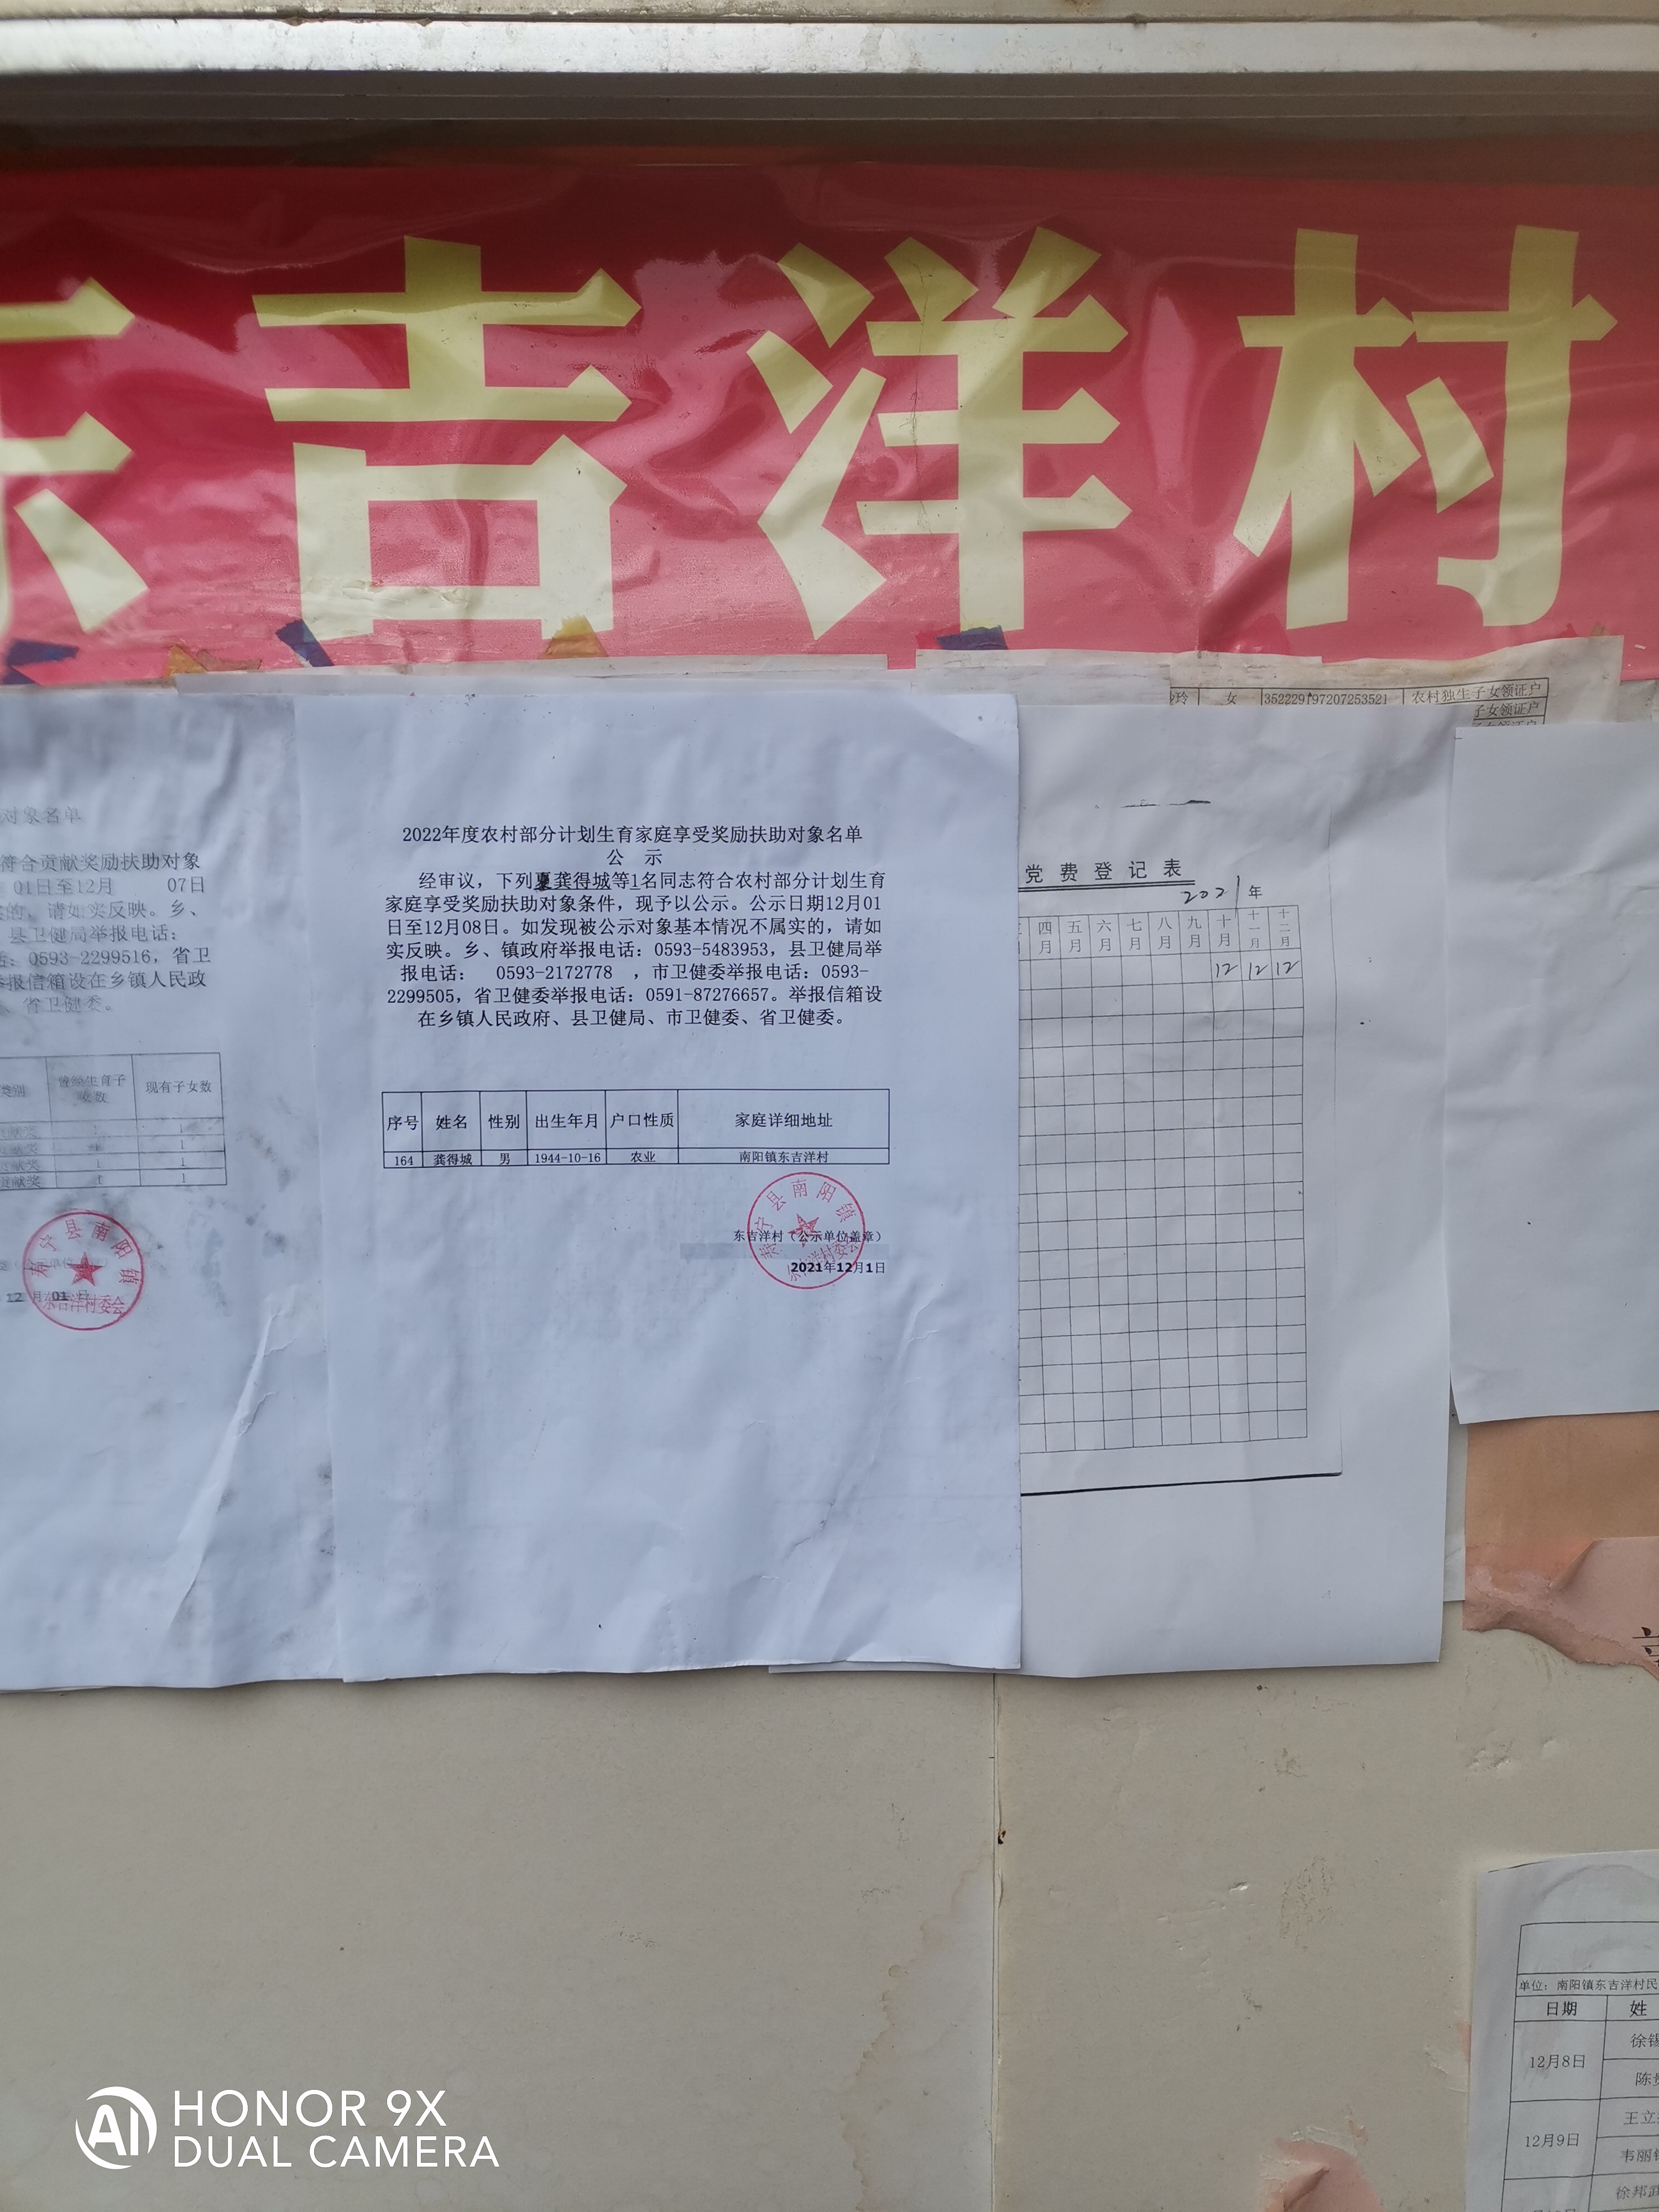 东吉洋村
玲 女 352229197207253521 农村独生子女领证户
子女领证户
对象名单
符合贡献奖励扶助对象
01日至12月 07日
的，请如实反映。乡、
县卫健局举报电话：
0593-2299516，省卫
报信箱设在乡镇人民政
、省卫健委。
类别 曾经生育子女数 现有子女数
献奖 1 1
献奖 1
献奖 1 1
贡献奖 1 1
寿宁县南阳镇
东吉洋村委会
12月01日
2022年度农村部分计划生育家庭享受奖励扶助对象名单
公 示
经审议，下列龚得城等1名同志符合农村部分计划生育
家庭享受奖励扶助对象条件，现予以公示。公示日期12月01
日至12月08日。如发现被公示对象基本情况不属实的，请如
实反映。乡、镇政府举报电话：0593-5483953，县卫健局举
报电话： 0593-2172778 ，市卫健委举报电话：0593-
2299505，省卫健委举报电话：0591-87276657。举报信箱设
在乡镇人民政府、县卫健局、市卫健委、省卫健委。
序号 姓名 性别 出生年月 户口性质 家庭详细地址
164 龚得城 男 1944-10-16 农业 南阳镇东吉洋村
寿宁县南阳镇
东吉洋村委会
东吉洋村（公示单位盖章）
2021年12月1日
党费登记表
2021年
四月 五月 六月 七月 八月 九月 十月 十一月 十二月
12 12 12
单位：南阳镇东吉洋村民
日期 姓
12月8日 徐锡
陈
12月9日 王立
韦丽
徐邦武
HONOR 9X
DUAL CAMERA